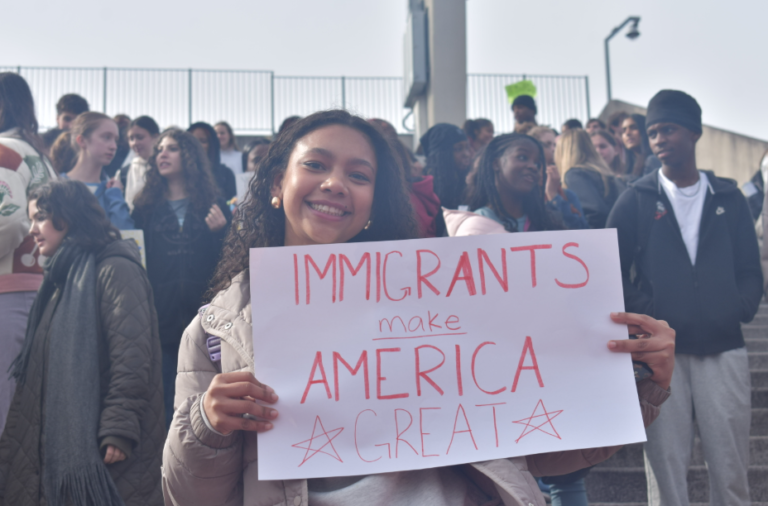 IMMIGRANTS
make
AMERICA
GREAT